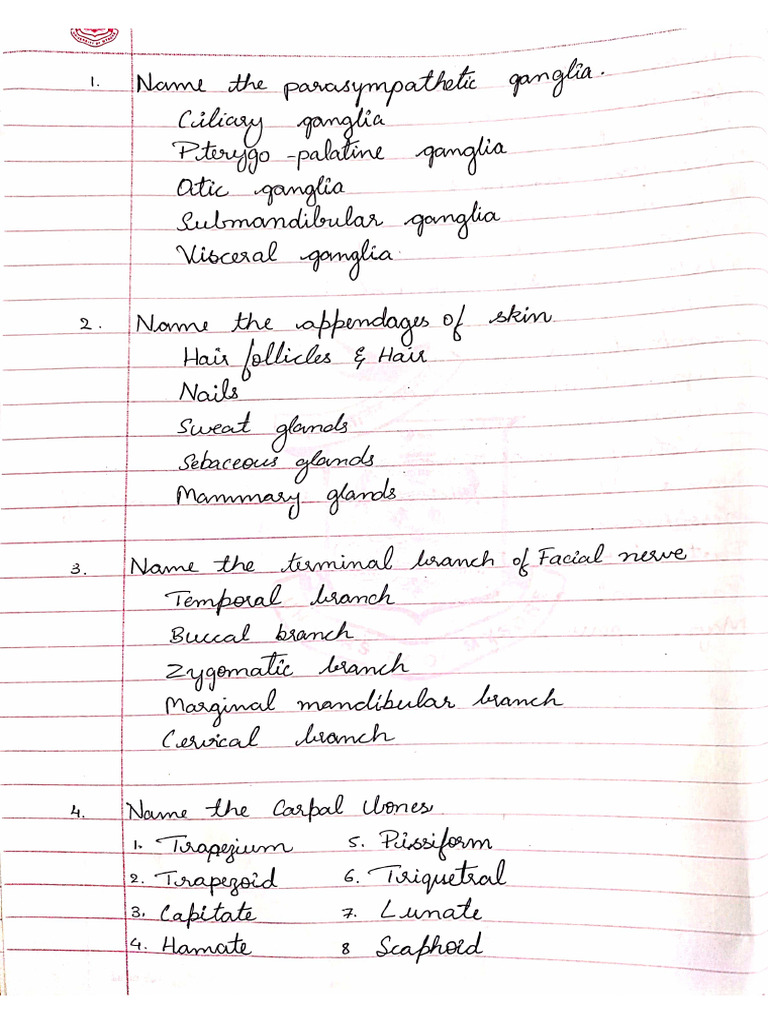 1. Name the parasympathetic ganglia.
Ciliary ganglia
Pterygo-palatine ganglia
Otic ganglia
Submandibular ganglia
Visceral ganglia.
2. Name the appendages of skin
Hair follicles & Hair
Nails
Sweat glands
Sebaceous glands
Mammary glands
3. Name the terminal branch of Facial nerve
Temporal branch
Buccal branch
Zygomatic branch
Marginal mandibular branch
Cervical branch
4. Name the Carpal bones
1. Trapezium 5. Pissiform
2. Trapezoid 6. Triquetral
3. Capitate 7. Lunate
4. Hamate 8 Scaphoid